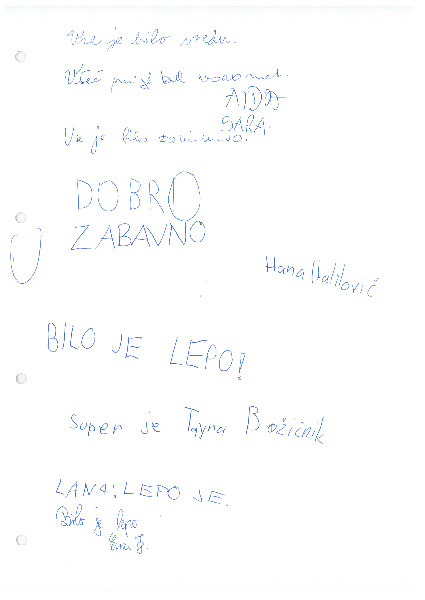 Vse je bilo vredu.
Všeč mi je bil
AJDA
SARA
Vse je bilo zanimivo.
DOBRO
ZABAVNO
Hana Halilović
BILO JE LEPO!
Super je Tajna Božičnik
LANA: LEPO JE.
Bilo je lepo